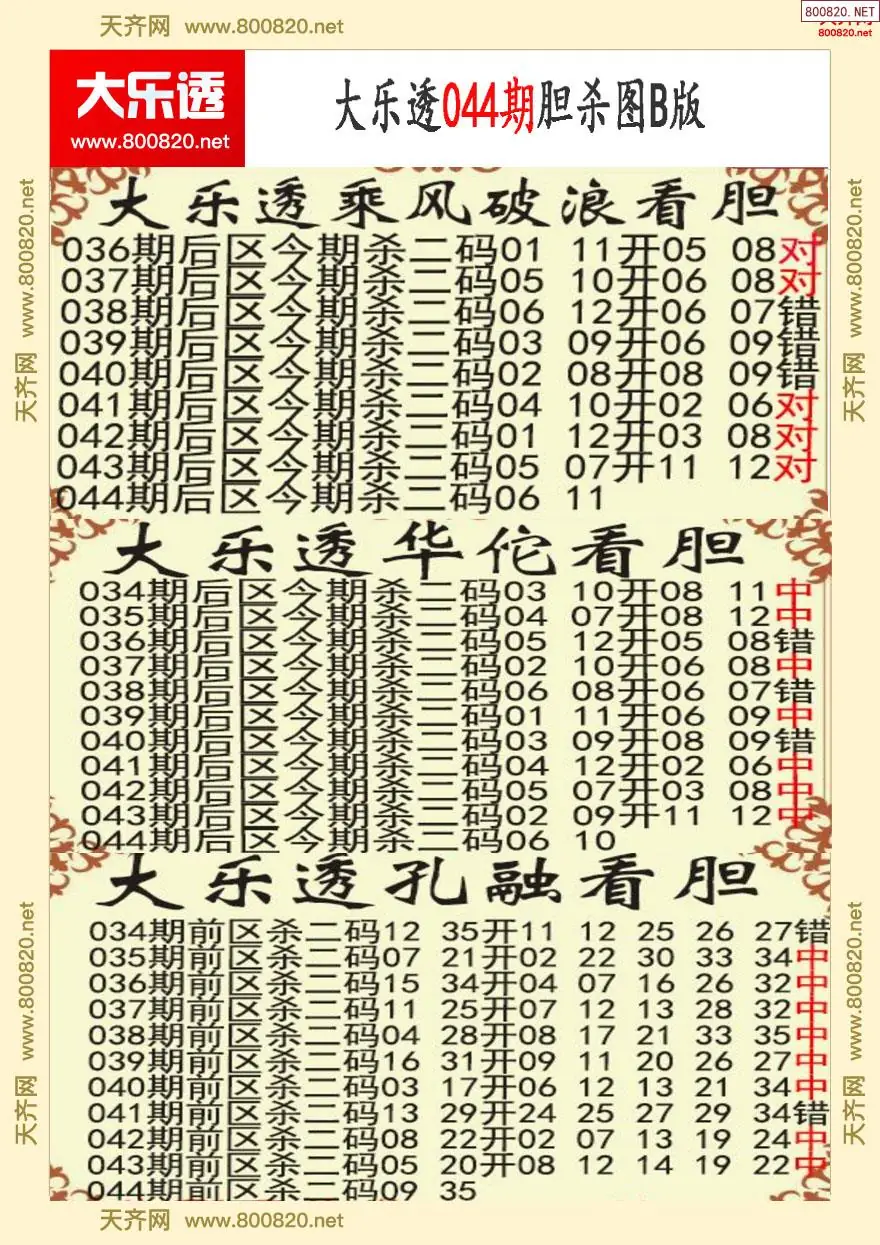 天齐网 www.800820.net
800820.NET
800820.net
大乐透
www.800820.net
大乐透044期胆杀图B版
天齐网 www.800820.net
天齐网 www.800820.net
大乐透乘风破浪看胆
036期后区今期杀二码01 11开05 08对
037期后区今期杀二码05 10开06 08对
038期后区今期杀二码06 12开06 07错
039期后区今期杀二码03 09开06 09错
040期后区今期杀二码02 08开08 09错
041期后区今期杀二码04 10开02 06对
042期后区今期杀二码01 12开03 08对
043期后区今期杀二码05 07开11 12对
044期后区今期杀二码06 11
大乐透华佗看胆
034期后区今期杀二码03 10开08 11中
035期后区今期杀二码04 07开08 12中
036期后区今期杀二码05 12开05 08错
037期后区今期杀二码02 10开06 08中
038期后区今期杀二码06 08开06 07错
039期后区今期杀二码01 11开06 09中
040期后区今期杀二码03 09开08 09错
041期后区今期杀二码04 12开02 06中
042期后区今期杀二码05 07开03 08中
043期后区今期杀二码02 09开11 12中
044期后区今期杀二码06 10
大乐透孔融看胆
034期前区杀二码12 35开11 12 25 26 27错
035期前区杀二码07 21开02 22 30 33 34中
036期前区杀二码15 34开04 07 16 26 32中
037期前区杀二码11 25开07 12 13 28 32中
038期前区杀二码04 28开08 17 21 33 35中
039期前区杀二码16 31开09 11 20 26 27中
040期前区杀二码03 17开06 12 13 21 34中
041期前区杀二码13 29开24 25 27 29 34错
042期前区杀二码08 22开02 07 13 19 24中
043期前区杀二码05 20开08 12 14 19 22中
044期前区杀二码09 35
天齐网 www.800820.net
天齐网 www.800820.net
天齐网 www.800820.net